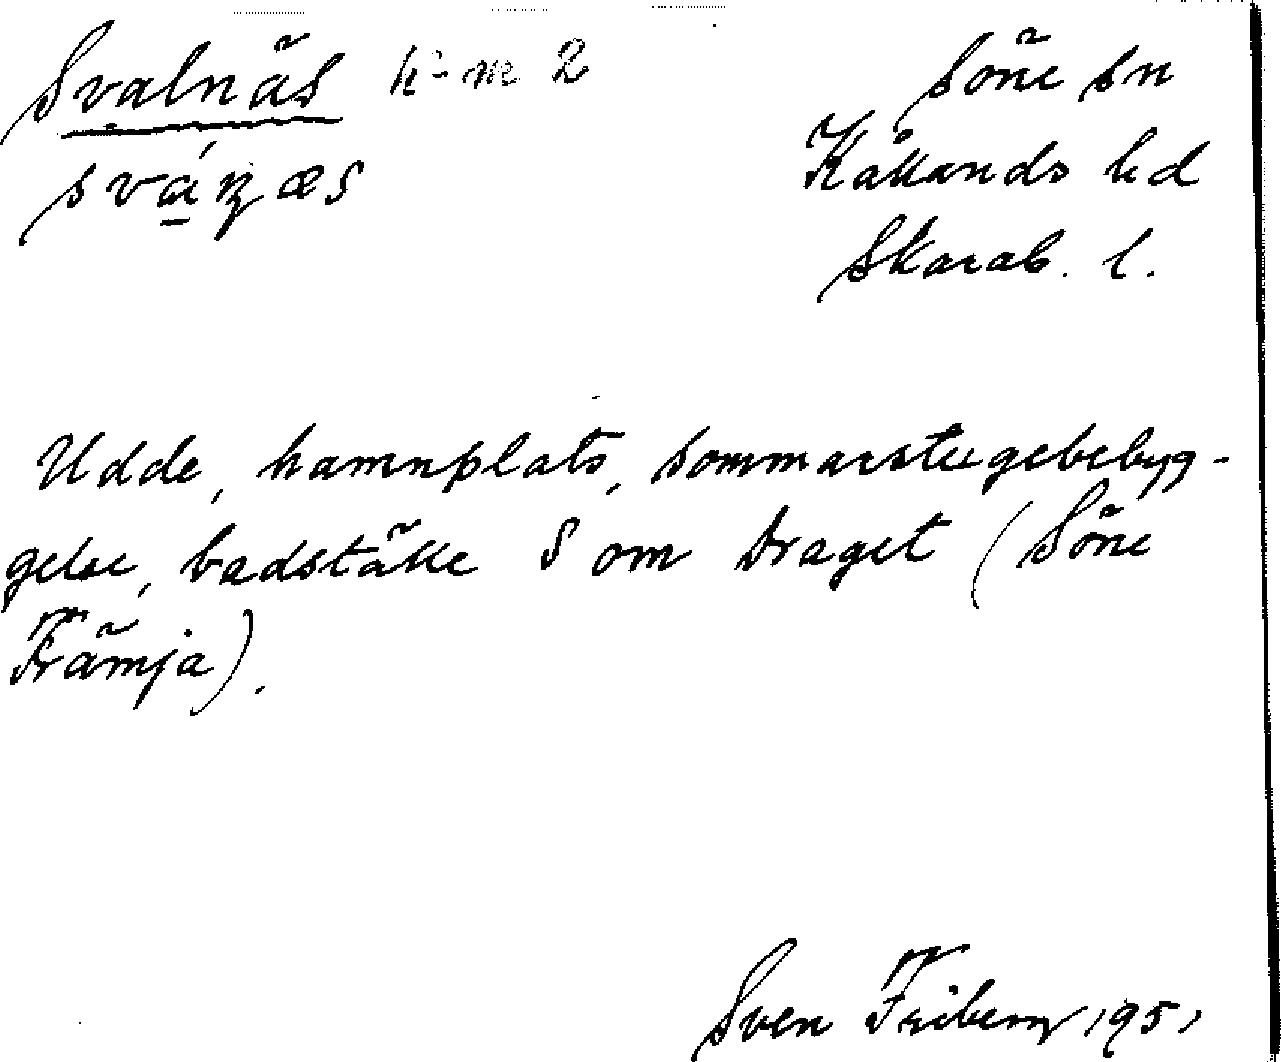 Svalnäs k-m 2
Söne sn
Kållands hd
Skarab. l.
Udde, hamnplats, sommarstugebebyg-
gelse, badställe S om Draget (Söne
Främja).
Sven Friberg 1951